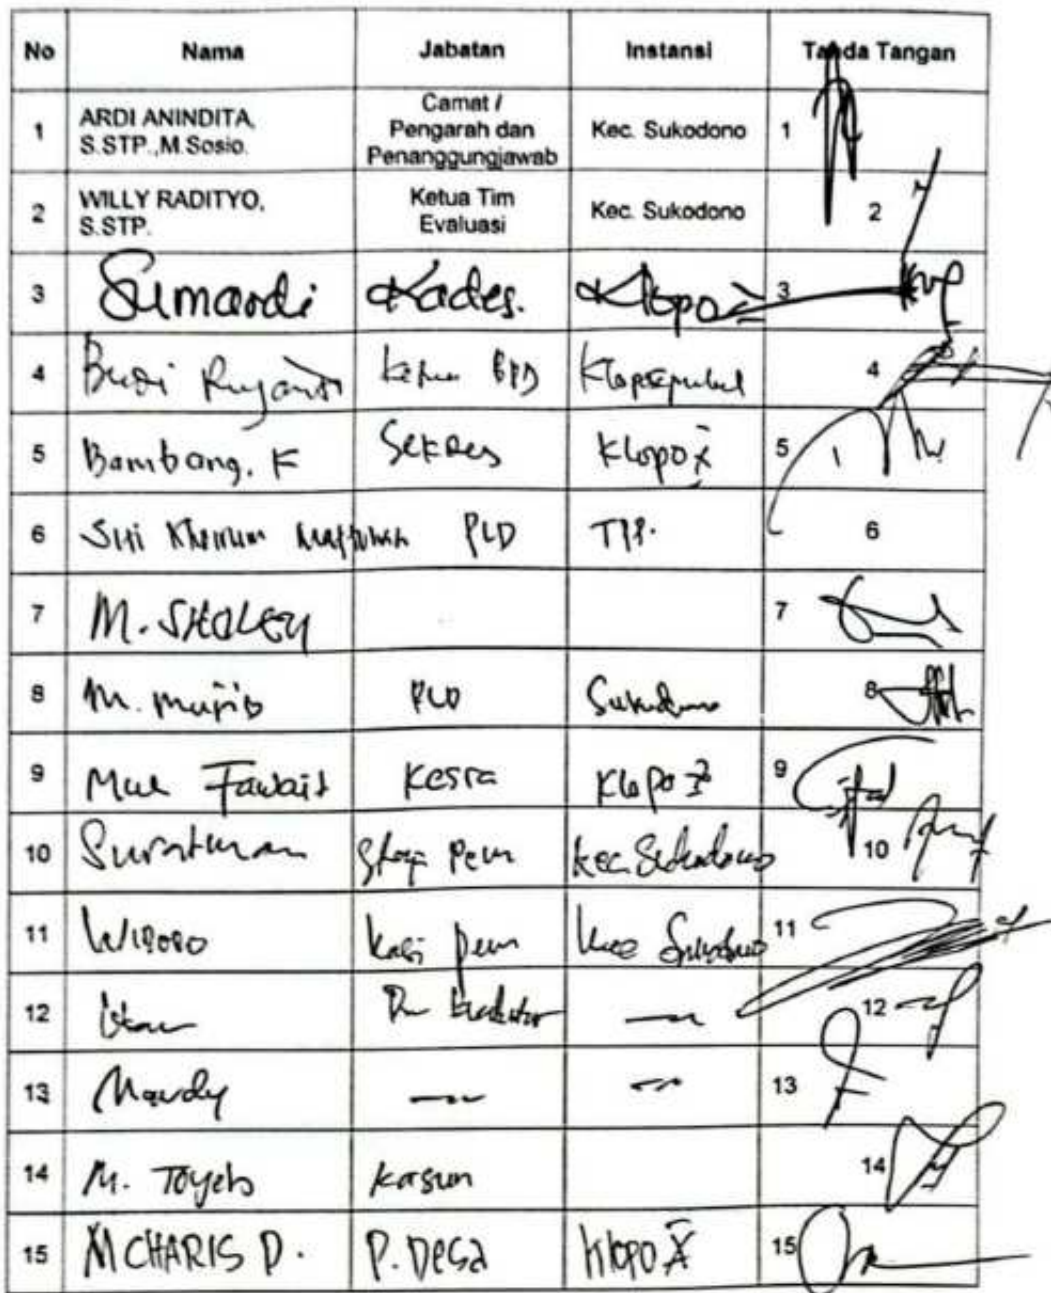 No Nama Jabatan Instansi Tanda Tangan
1 ARDI ANINDITA, S.STP.,M.Sosio. Camat / Pengarah dan Penanggungjawab Kec. Sukodono 1
2 WILLY RADITYO, S.STP. Ketua Tim Evaluasi Kec. Sukodono 2
3 Sumardi Kades. Klopo 3
4 Budi Ketua BPD Kloposepuluh 4
5 Bambang. K SEKDES Klopo X 5
6 PLD TPP. 6
7 M. SHOLEH 7
8 M. Mujib PLD Sukodono 8
9 Fawaid Kesra Klopo 9
10 Suratman Staf Pem Kec. Sukodono 10
11 Kasi Pem Kec Sukodono 11
12 12
13 13
14 M. Toyeb Kasun 14
15 M CHARIS D. P. Desa Klopo X 15